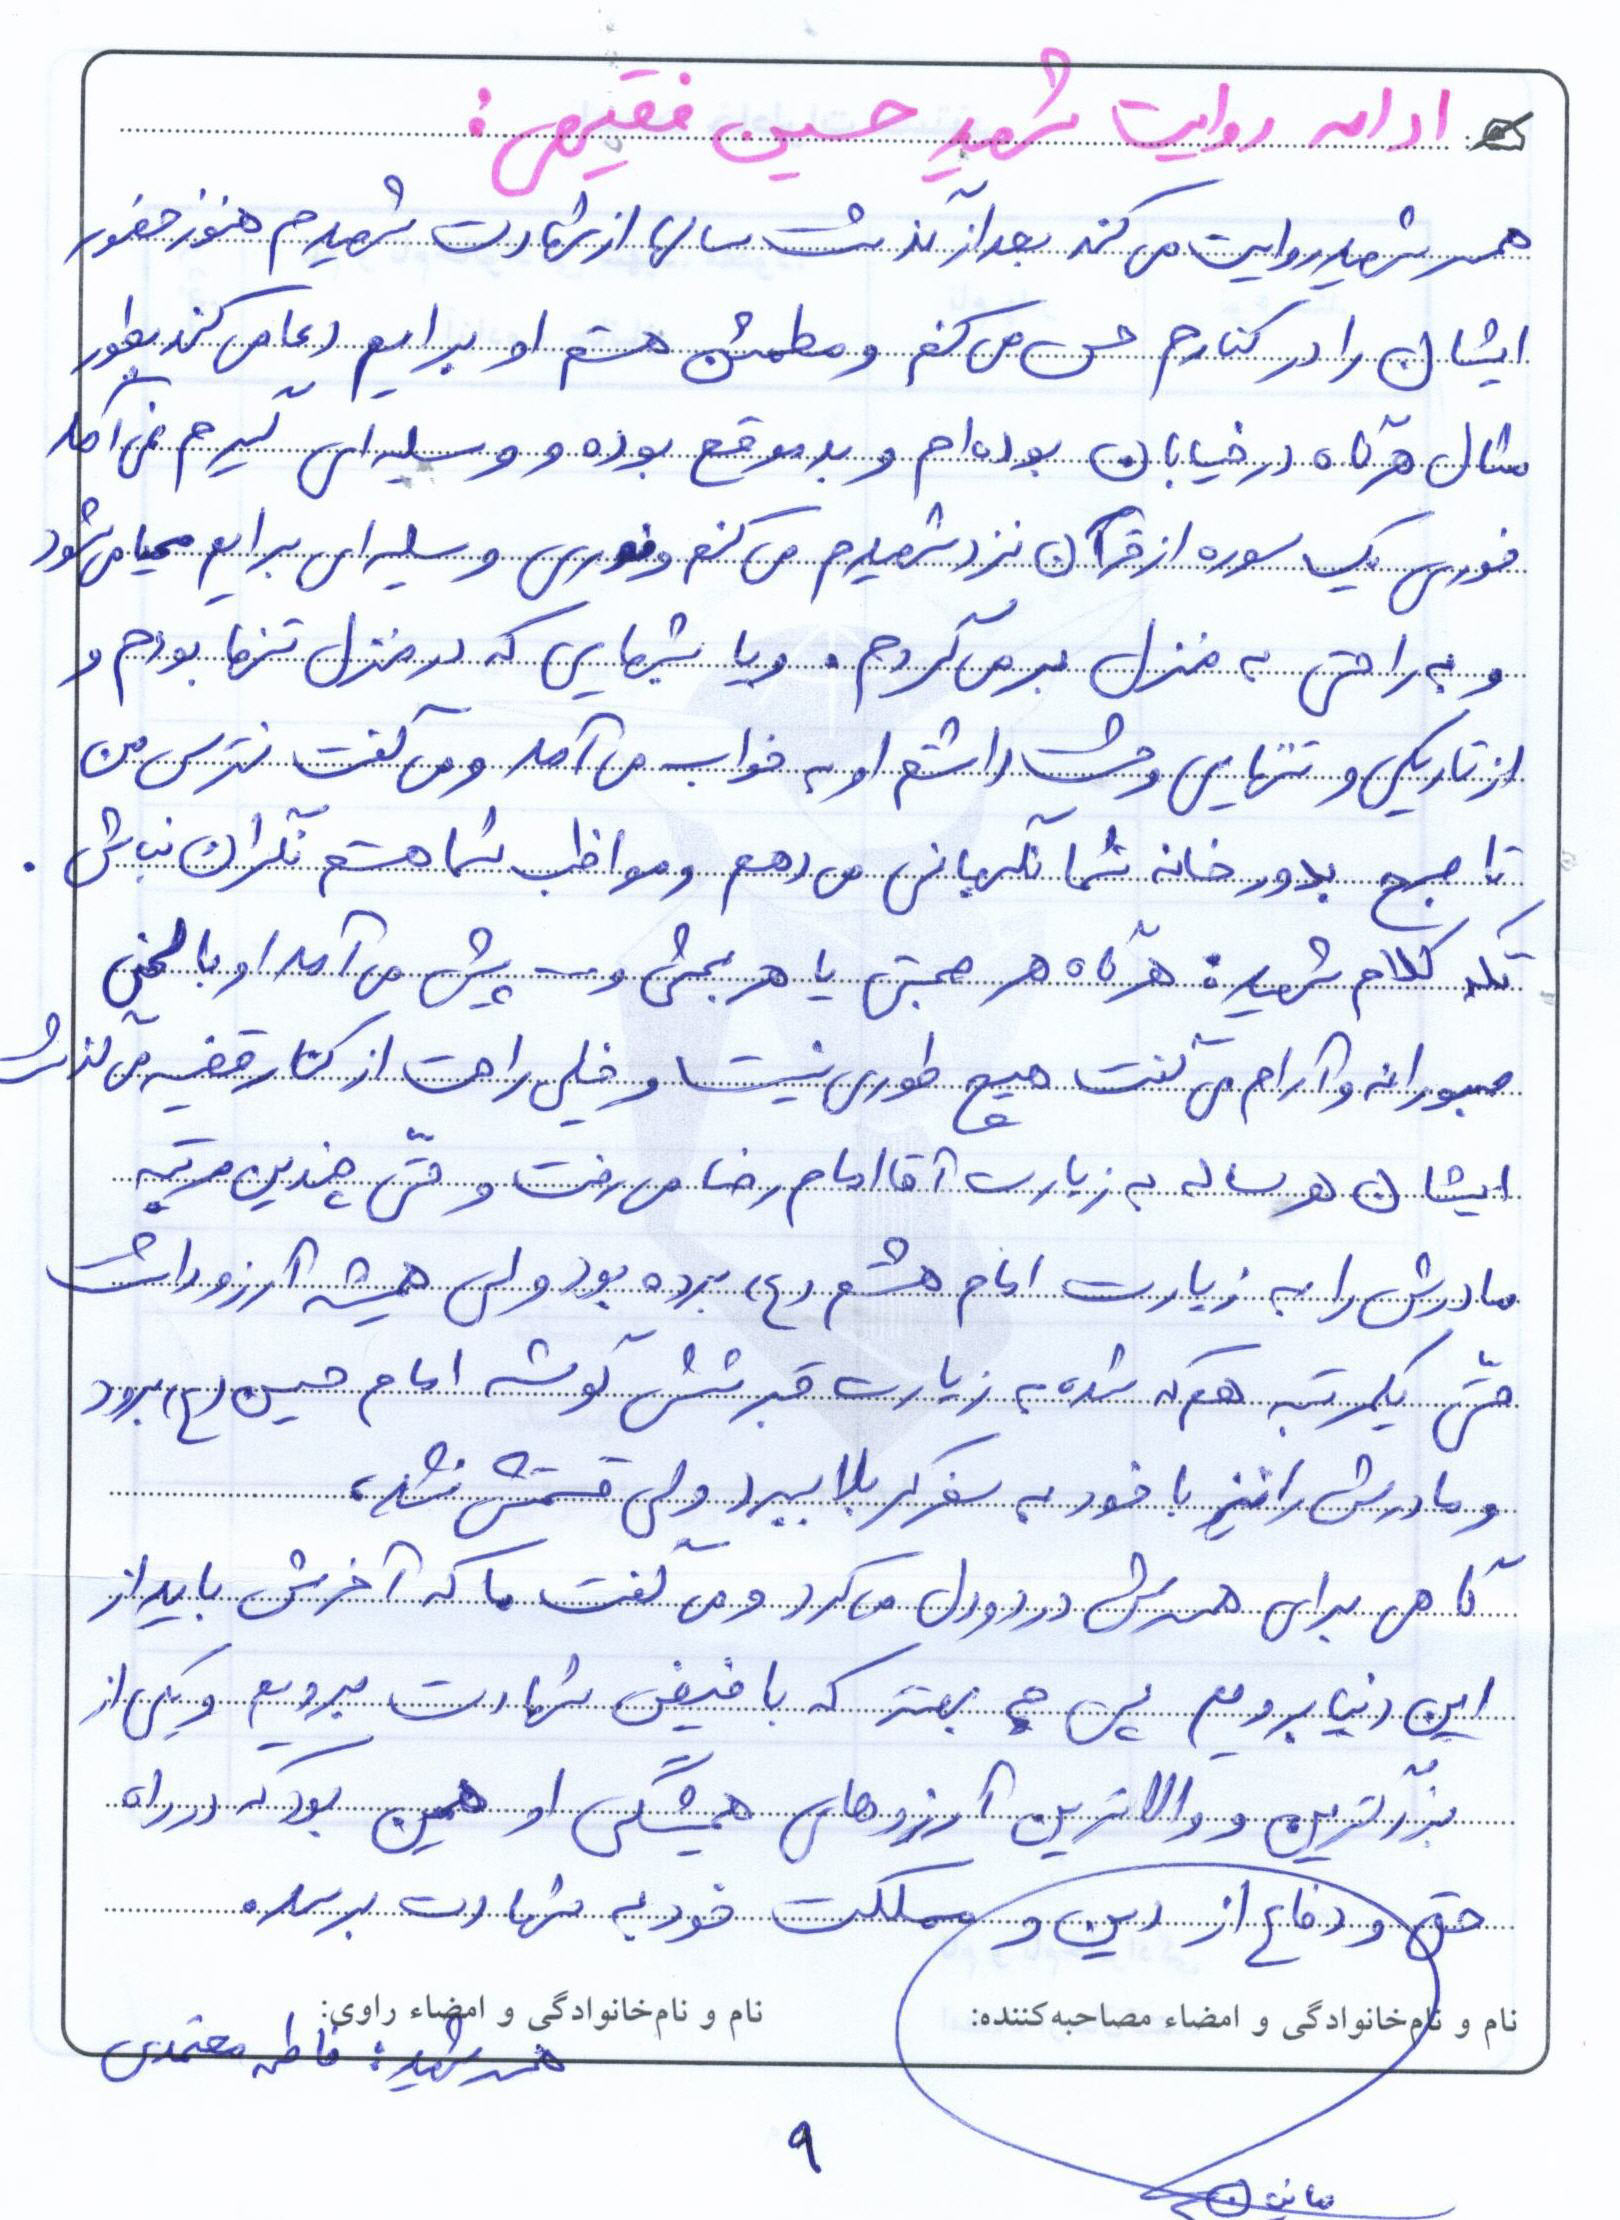 ادامه روایت شهید حسین فقیهی:
همسر شهید روایت می‌کند بعد از گذشت سالها از شهادت شهیدم هنوز حضور
ایشان را در کنارم حس می‌کنم و مطمئن هستم او برایم دعا می‌کند بطور
مثال هرگاه در خیابان بوده‌ام و بد موقع بوده و وسیله‌ای گیرم نمی‌آمد
فوری یک سوره از قرآن نزد شهیدم می‌کنم و فوری وسیله‌ای برایم محیا می‌شود
و به راحتی به منزل بر می‌گردم. و یا شبهایی که در منزل تنها بودم و
از تاریکی و تنهایی وحشت داشتم او به خواب می‌آمد و می‌گفت نترس من
تا صبح بدور خانه شما نگهبانی می‌دهم و مواظب شما هستم نگران نباش.
تکه کلام شهید: هرگاه هر صحبتی یا هر بحثی و... پیش می‌آمد او با لحنی
صبورانه و آرام می‌گفت هیچ طوری نیست و خیلی راحت از کنار قضیه می‌گذشت
ایشان هر ساله به زیارت آقا امام رضا می‌رفت و حتّی چندین مرتبه
مادرش را به زیارت امام هشتم (ع) برده بود ولی همیشه آرزو داشت
حتّی یکمرتبه هم که شده به زیارت قبر شش گوشه امام حسین (ع) برود
و مادرش را نیز با خود به سفر کربلا ببرد ولی قسمتش نشد،
گاهی برای همسرش درد و دل می‌کرد و می‌گفت ما که آخرش باید از
این دنیا برویم پس چه بهتر که با فیض شهادت برویم و یکی از
بزرگترین و والاترین آرزوهای همیشگی او همین بود که در راه
حق و دفاع از دین و مملکت خود به شهادت برسد.
نام و نام‌خانوادگی و امضاء مصاحبه‌کننده: نام و نام‌خانوادگی و امضاء راوی:
همسر شهید: فاطمه معتمدی
۹